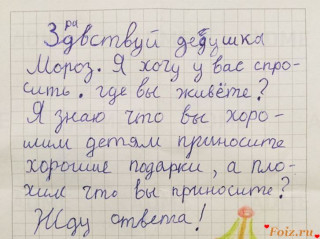 Здравствуй дедушка
Мороз. Я хочу у вас спро-
сить. где вы живёте?
Я знаю что вы хоро-
шим детям приносите
хорошие подарки, а пло-
хим что вы приносите?
Жду ответа!
Foiz.ru